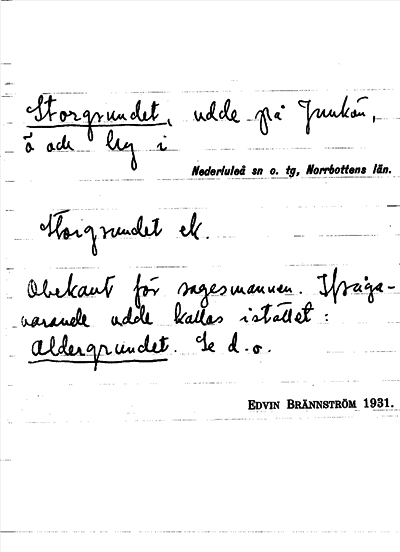 Storgrundet, udde på Junkön,
ö och hg i
Nederluleå sn o. tg, Norrbottens län.
Storgrundet ek.
Obekant för sagesmannen. Ifråga-
varande udde kallas istället:
Aldergrundet. Se d.o.
EDVIN BRÄNNSTRÖM 1931.